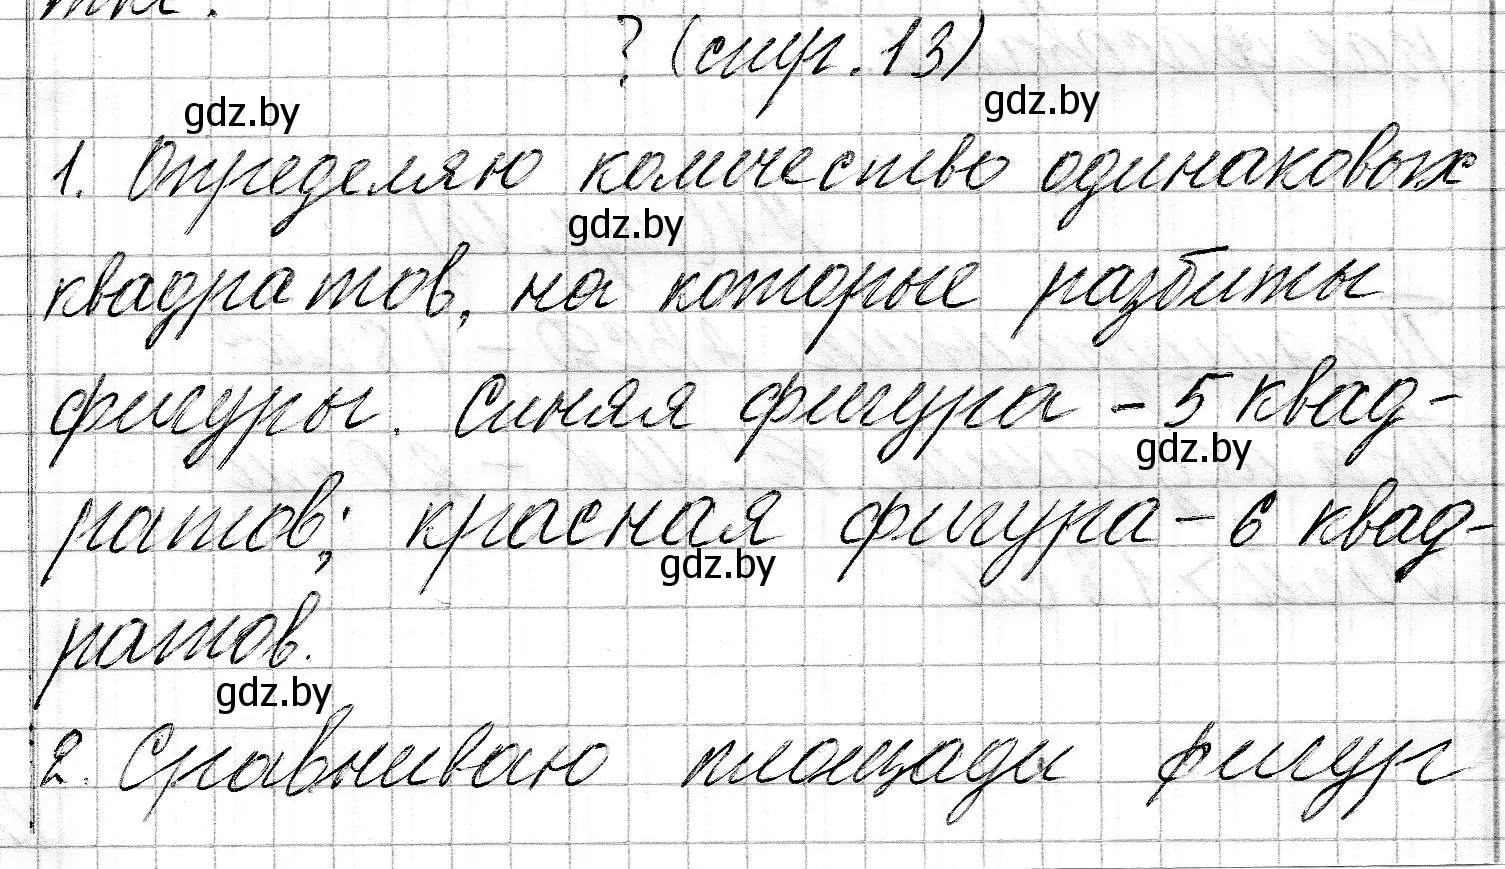 ? (стр. 13)
gdz.by
gdz.by
1. Определяю количество одинаковых
gdz.by
квадратов, на которые разбиты
фигуры. Синяя фигура - 5 квад-
gdz.by
ратов; красная фигура - 6 квад-
gdz.by
ратов.
gdz.by
2. Сравниваю площади фигур